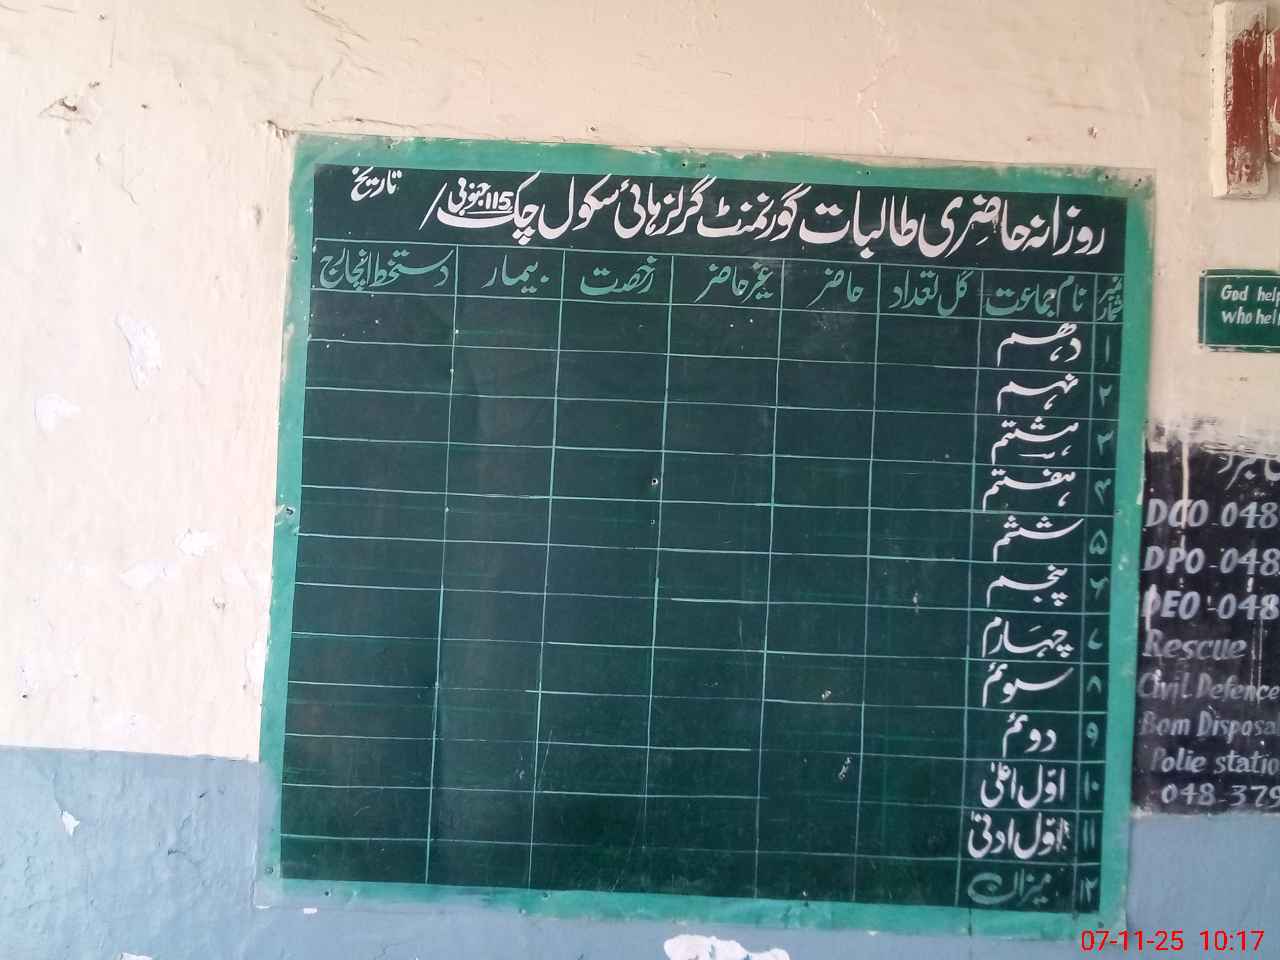 روزانہ حاضری طالبات گورنمنٹ گرلز ہائی سکول چک 115 جنوبی / تاریخ
نمبر شمار نام جماعت کل تعداد حاضر غیر حاضر رخصت بیمار دستخط انچارج
۱ دھم
۲ نہم
۳ ہشتم
۴ ہفتم
۵ ششم
۶ پنجم
۷ چہارم
۸ سوئم
۹ دوئم
۱۰ اوّل اعلیٰ
۱۱ اوّل ادنیٰ
۱۲ میزان
God help
who hel
DCO - 048
DPO - 048
DEO - 048
Rescue
Civil Defence
Bom Disposa
Polie statio
048-379
07-11-25 10:17